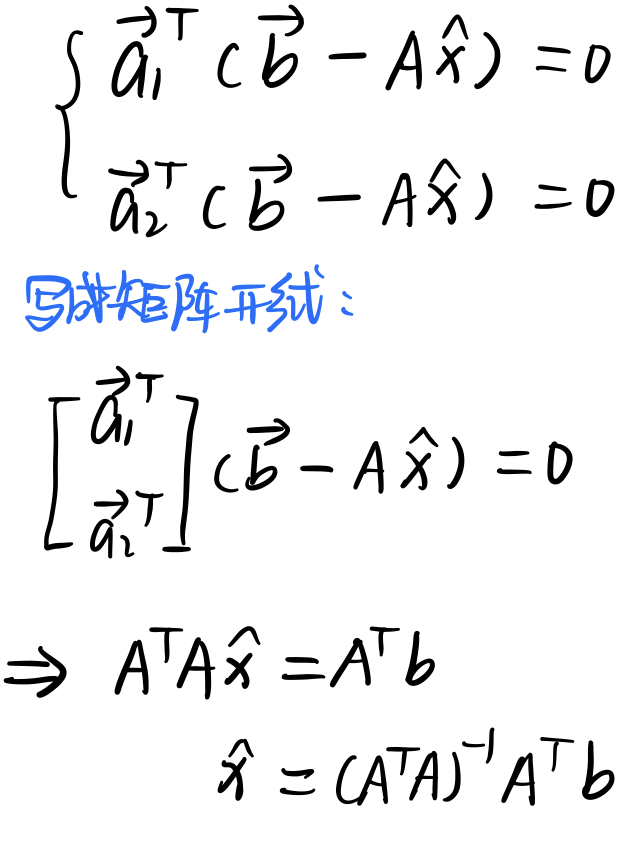 { \vec{a_1}^T (\vec{b} - A\hat{x}) = 0
\vec{a_2}^T (\vec{b} - A\hat{x}) = 0
写成矩阵形式:
[ \vec{a_1}^T \\ \vec{a_2}^T ] (\vec{b} - A\hat{x}) = 0
⇒ A^T A\hat{x} = A^T b
\hat{x} = (A^T A)^{-1} A^T b